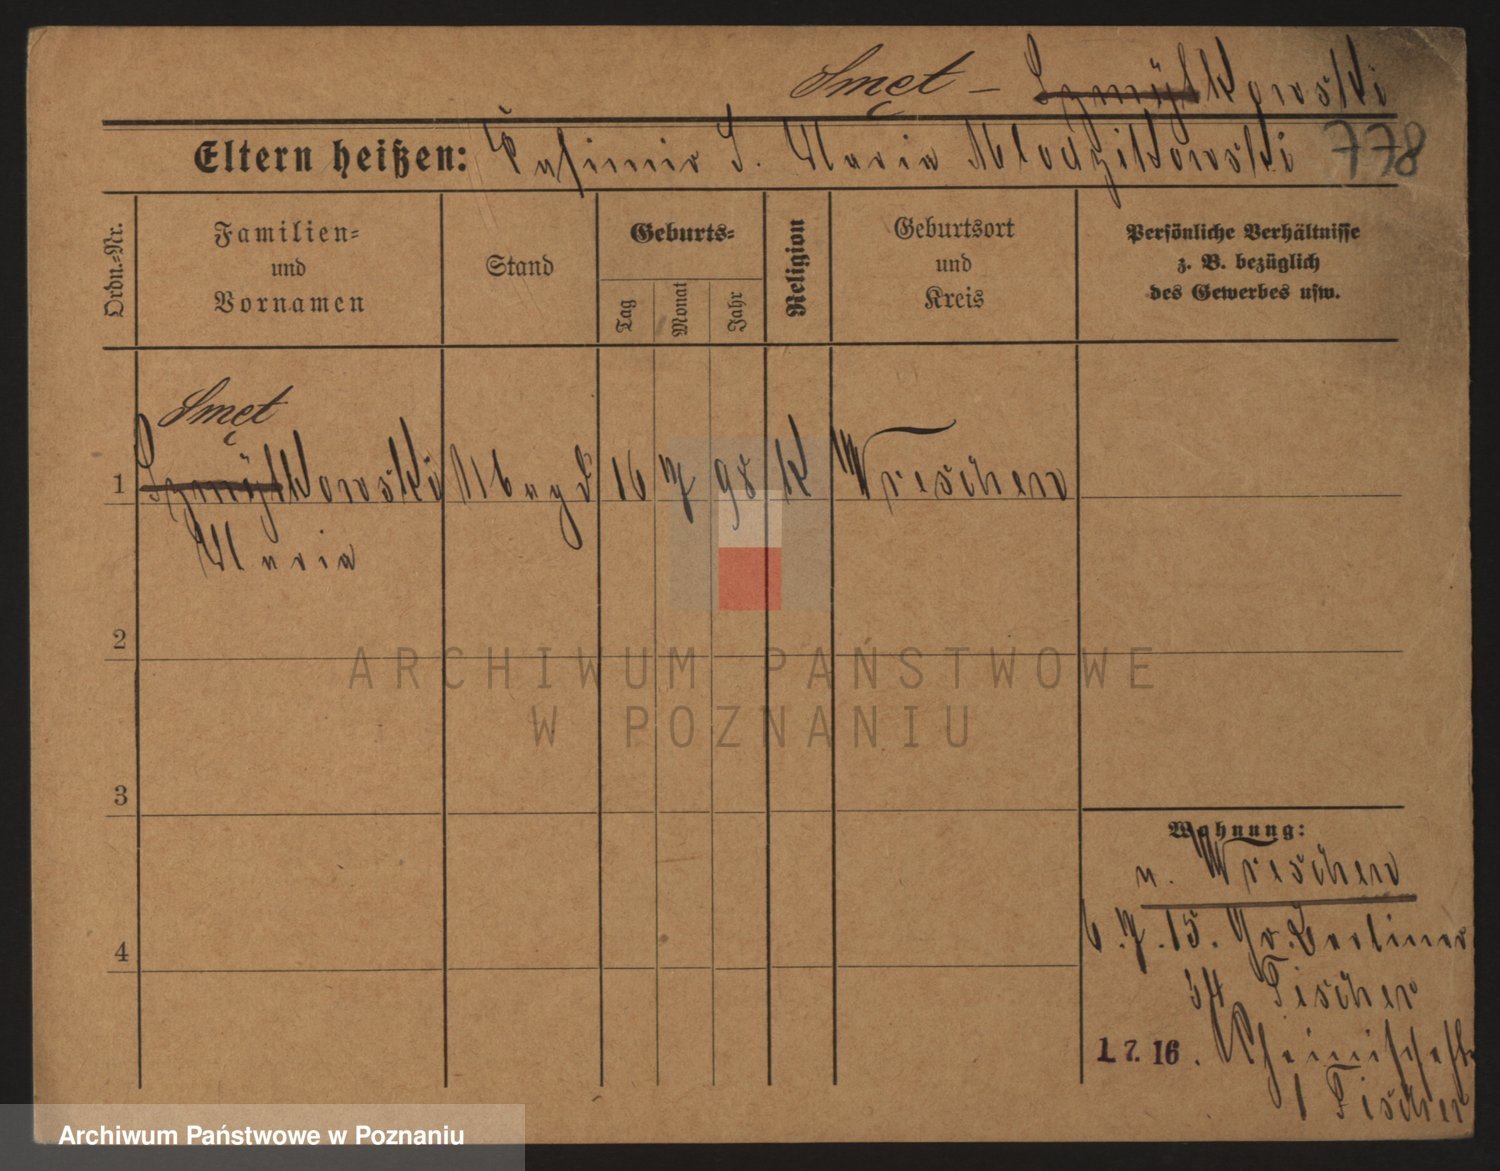 Smęt – Szmytkowski
Eltern heißen: Kasimir S. Maria Mlodzikowski 778
Ordn.-Nr.
Familien-
und
Vornamen
Stand
Geburts-
Tag
Monat
Jahr
Religion
Geburtsort
und
Kreis
Persönliche Verhältnisse
z. B. bezüglich
des Gewerbes usw.
Smęt
1 Szmytkowski Magd 16 7 98 K Wreschen
Maria
2
ARCHIWUM PAŃSTWOWE
W POZNANIU
3
Wohnung:
n. Wreschen
6.7.15. Gr. Berliner
54 Fischer
1.7.16. Rheinischestr
1 Fischer
4
Archiwum Państwowe w Poznaniu